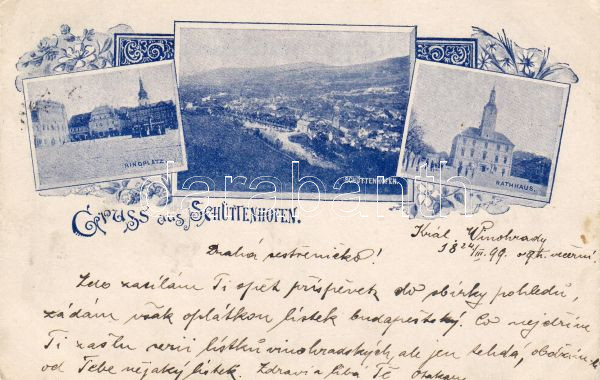 RINGPLATZ
SCHÜTTENHOFEN.
RATHHAUS.
darabanth
Gruss aus SCHÜTTENHOFEN.
Král. Winohrady
18 24/III. 99. o 9h. večerní.
Drahá sestřeničko!
Zde zasílám Ti opět příspěvek do sbírky pohledů,
žádám však oplátkou lístek budapešťský. Co nejdříve
Ti zašlu serii lístků vinohradských, ale jen tehda, obdržím-li
od Tebe nějaký lístek. Zdraví a líbá Tě Otakar